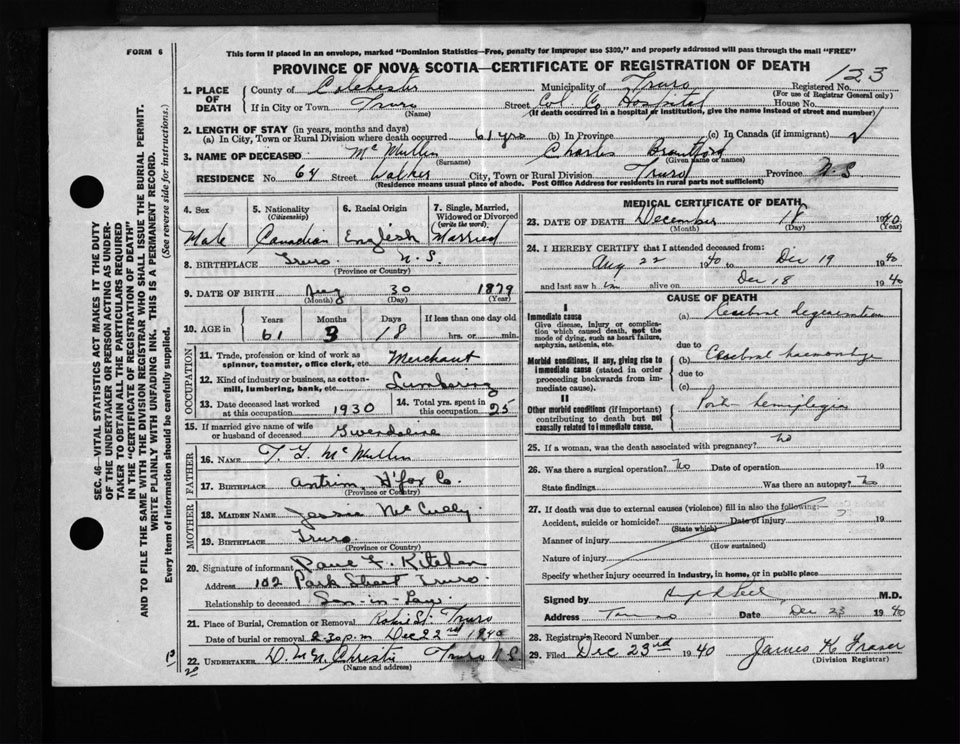 FORM 6
This form if placed in an envelope, marked "Dominion Statistics—Free, penalty for improper use $300," and properly addressed will pass through the mail "FREE"
PROVINCE OF NOVA SCOTIA—CERTIFICATE OF REGISTRATION OF DEATH
123
1. PLACE OF DEATH
County of Colchester Municipality of Truro Registered No.
(For use of Registrar General only)
If in City or Town Truro Street Col. Co Hospital House No.
(Name) (If death occurred in a hospital or institution, give the name instead of street and number)
2. LENGTH OF STAY (in years, months and days)
(a) In City, Town or Rural Division where death occurred 61 yrs (b) In Province (c) In Canada (if immigrant)
3. NAME OF DECEASED McMullin Charles Brantford
(Surname) (Given name or names)
RESIDENCE No. 64 Street Walker City, Town or Rural Division Truro Province N.S
(Residence means usual place of abode. Post Office Address for residents in rural parts not sufficient)
4. Sex Male
5. Nationality (Citizenship) Canadian
6. Racial Origin English
7. Single, Married, Widowed or Divorced (write the word) Married
8. BIRTHPLACE Truro N.S.
(Province or Country)
9. DATE OF BIRTH Aug 30 1879
(Month) (Day) (Year)
10. AGE in Years Months Days If less than one day old
61 3 18 hrs. or min.
OCCUPATION
11. Trade, profession or kind of work as spinner, teamster, office clerk, etc. Merchant
12. Kind of industry or business, as cotton-mill, lumbering, bank, etc. Lumbering
13. Date deceased last worked at this occupation 1930
14. Total yrs. spent in this occupation 25
15. If married give name of wife or husband of deceased Gwendoline
FATHER
16. NAME T. G. McMullin
17. BIRTHPLACE Antrim, H'fax Co.
(Province or Country)
MOTHER
18. MAIDEN NAME Jessie McCully
19. BIRTHPLACE Truro
(Province or Country)
20. Signature of informant F.
Address 102 Park Street Truro
Relationship to deceased Son-in-Law
21. Place of Burial, Cremation or Removal Robie St. Truro
Date of burial or removal 2.30 p.m Dec 22nd 1940
22. UNDERTAKER Christie Truro N.S
(Name and address)
MEDICAL CERTIFICATE OF DEATH
23. DATE OF DEATH December 18 1940
(Month) (Day) (Year)
24. I HEREBY CERTIFY that I attended deceased from:
Aug 22 1940 to Dec 19 1940
and last saw him alive on Dec 18 1940
CAUSE OF DEATH
I
Immediate cause
Give disease, injury or complication which caused death, not the mode of dying, such as heart failure, asphyxia, asthenia, etc.
(a) Cerebral degeneration
due to
Morbid conditions, if any, giving rise to immediate cause (stated in order proceeding backwards from immediate cause).
(b) Cerebral haemorrhage
due to
(c)
II
Other morbid conditions (if important) contributing to death but not causally related to immediate cause.
hemiplegia
25. If a woman, was the death associated with pregnancy? No
26. Was there a surgical operation? No Date of operation 19
State findings Was there an autopsy? No
27. If death was due to external causes (violence) fill in also the following:—
Accident, suicide or homicide? Date of injury 19
(State which)
Manner of injury
(How sustained)
Nature of injury
Specify whether injury occurred in industry, in home, or in public place
Signed by M.D.
Address Date Dec 23 1940
28. Registrar's Record Number
29. Filed Dec 23rd 1940 James K Fraser
(Division Registrar)
SEC. 46—VITAL STATISTICS ACT MAKES IT THE DUTY
OF THE UNDERTAKER OR PERSON ACTING AS UNDER-
TAKER TO OBTAIN ALL THE PARTICULARS REQUIRED
IN THE "CERTIFICATE OF REGISTRATION OF DEATH"
AND TO FILE THE SAME WITH THE DIVISION REGISTRAR WHO SHALL ISSUE THE BURIAL PERMIT.
WRITE PLAINLY WITH UNFADING INK. THIS IS A PERMANENT RECORD.
Every item of information should be carefully supplied. (See reverse side for instructions.)